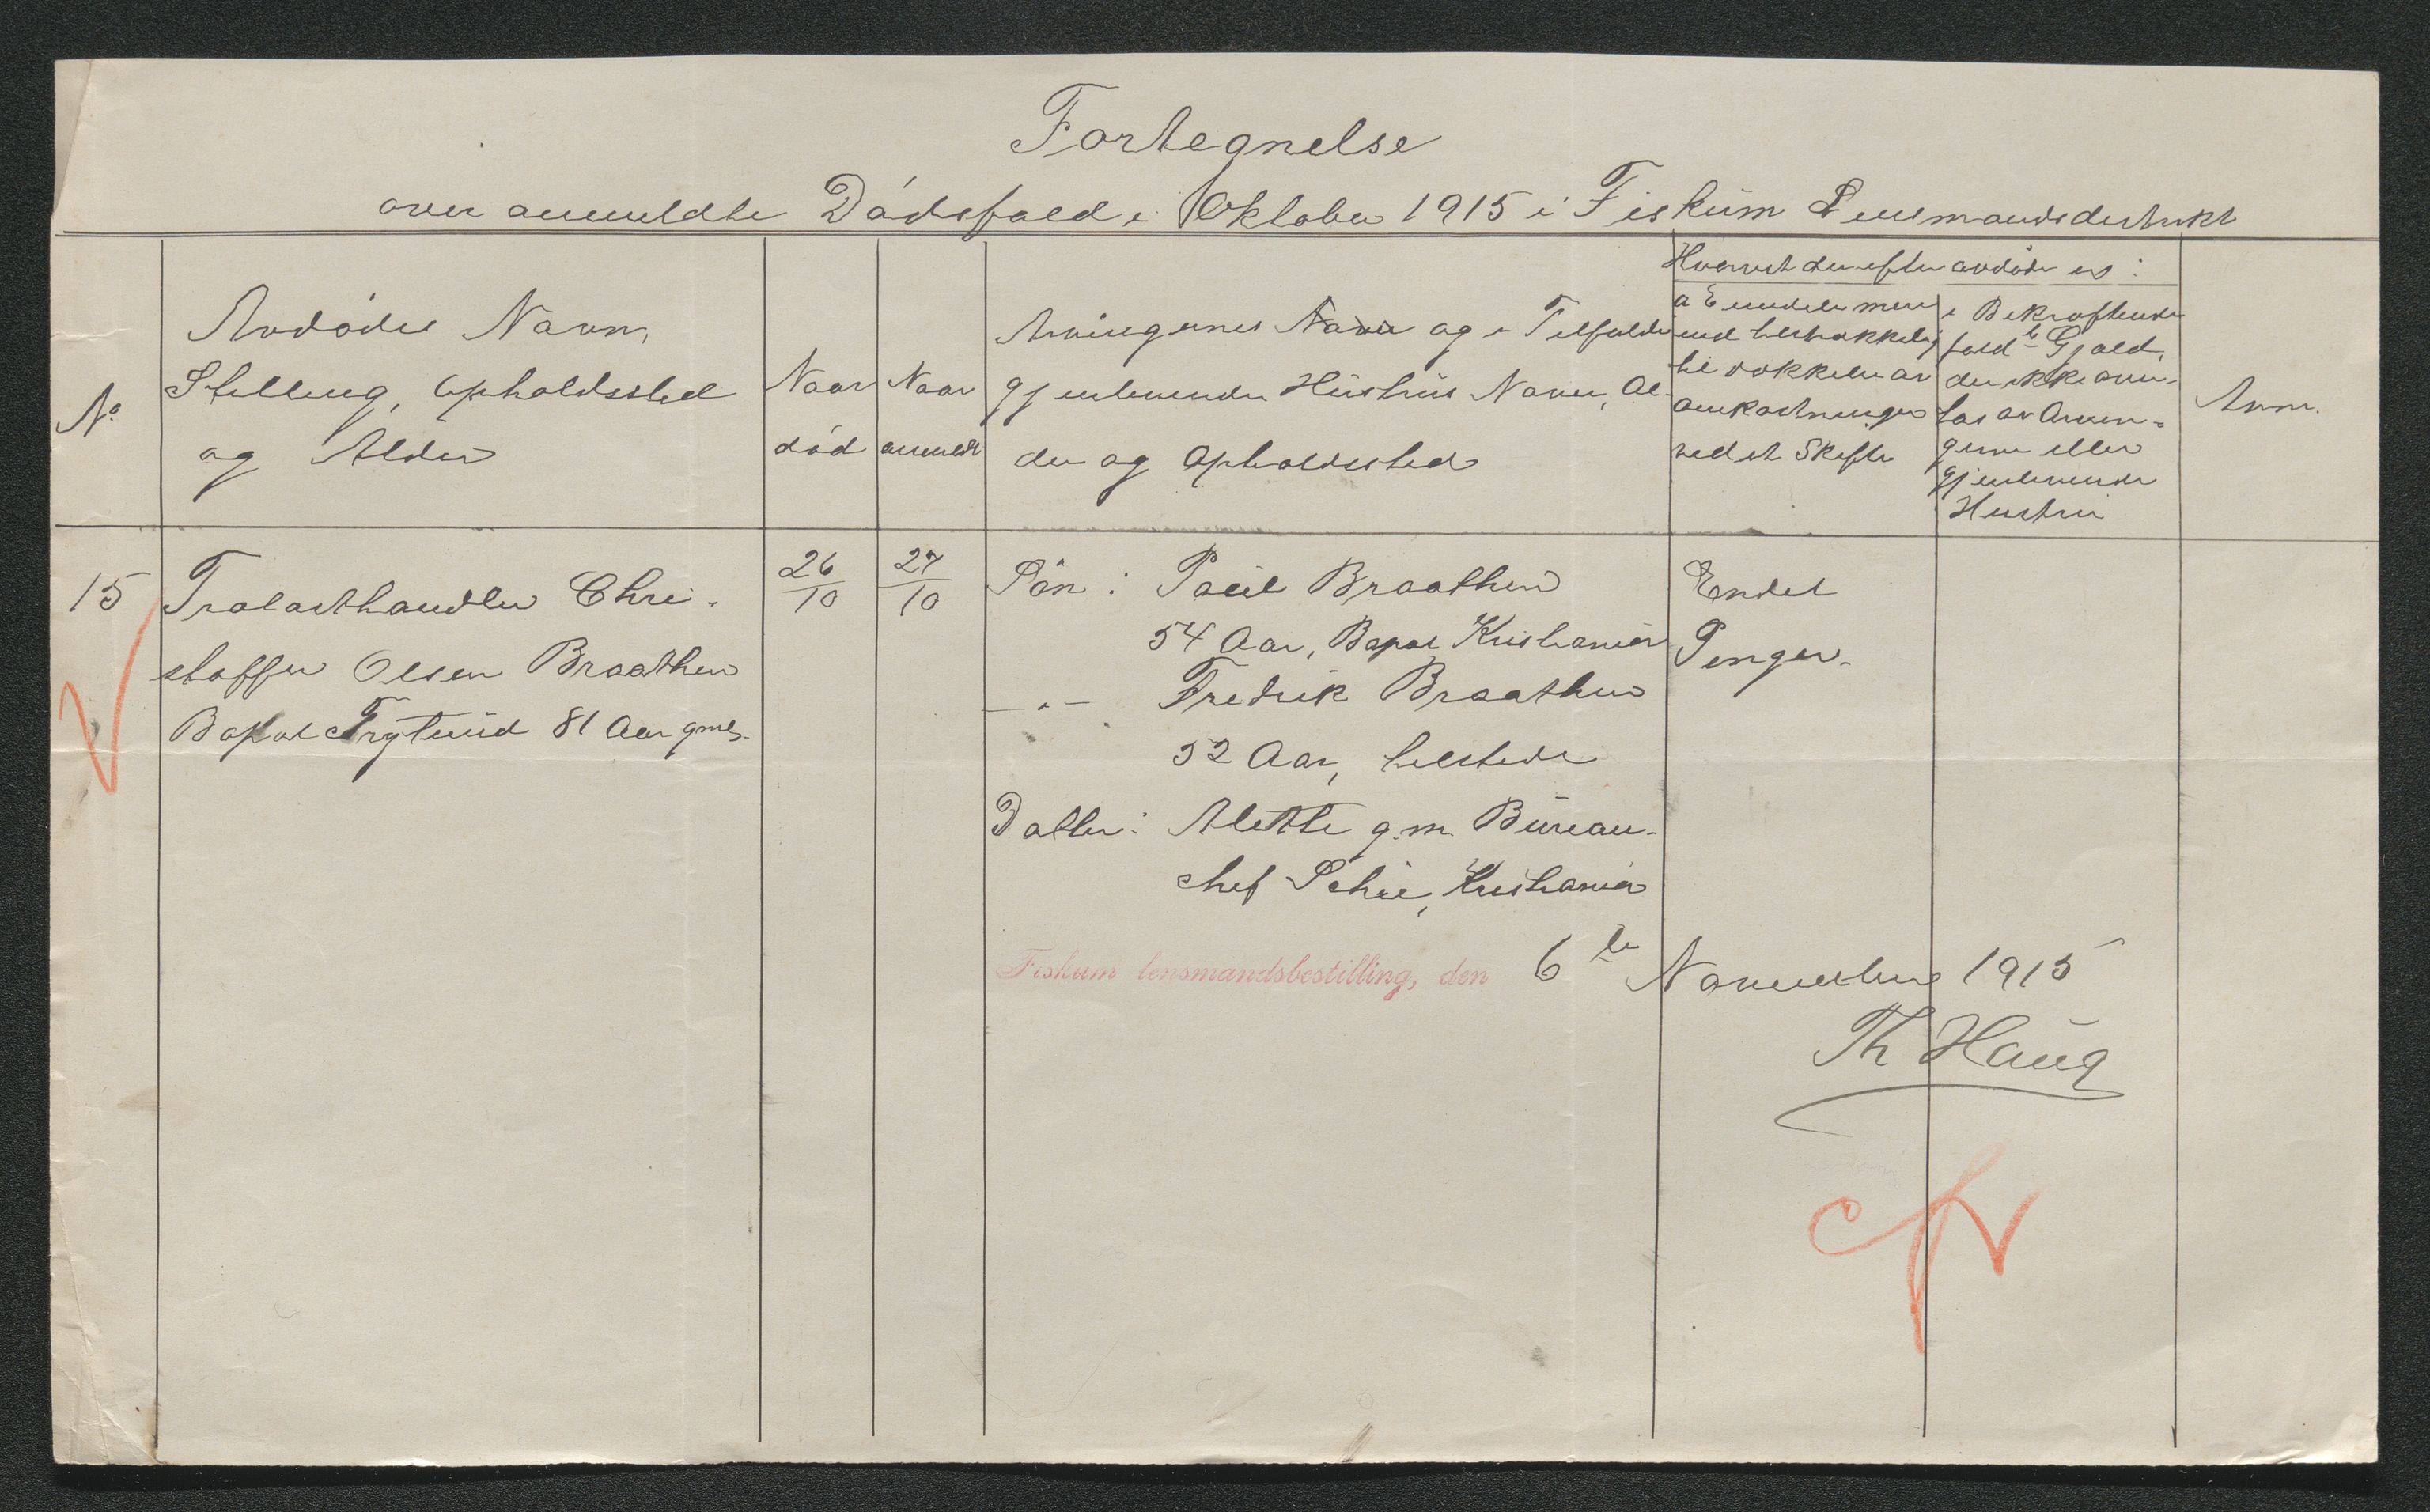 Fortegnelse
over anmeldte Dödsfald i Oktober 1915 i Fiskum Lensmandsdistrikt
No
Avdødes Navn,
Stilling, Opholdssted
og Alder
Naar
död
Naar
anmeldt
Arvingernes Navn og i Tilfælde
gjenlevende Hustrus Navn, Al-
der og Opholdssted
Hvorvidt der efter avdöde er:
a Eiendele mere
end tilstrækkelig
til dækkelse av
omkostninger
ved et Skifte
i Bekræftende
fald b Gjæld,
der ikke over-
tas av Arvin-
gerne eller
gjenlevende
Hustru
Anm.
15
Trælasthandler Chri-
stoffer Olsen Braathen
Bopæl 81 Aar gml.
26/10
27/10
Sön: Paul Braathen
54 Aar, Bopæl Kristiania
-"- Fredrik Braathen
52 Aar, tilstede
Datter: Alette g.m. Bureau-
chef Schie, Kristiania
Endel
Penger.
Fiskum lensmandsbestilling, den 6te November 1915
Th Haug